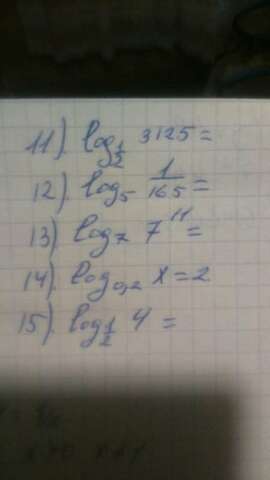 11). log_{1/2} 3125 =
12). log_5 1/165 =
13). log_7 7^{11} =
14). log_{0,2} x = 2
15). log_{1/2} 4 =